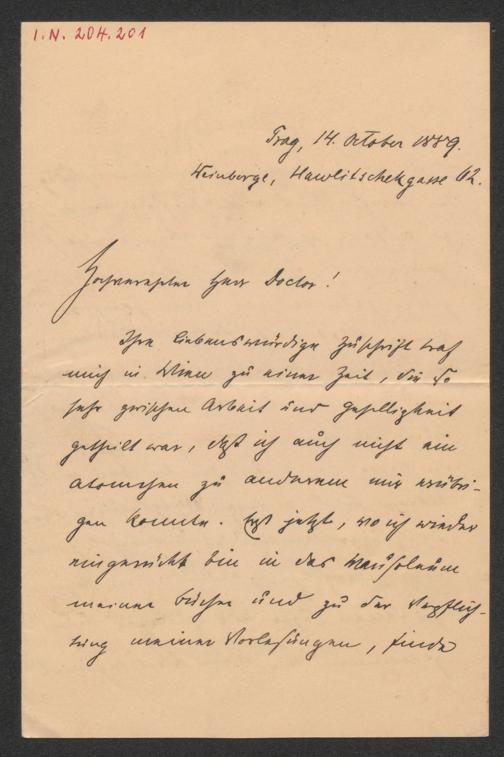 I.N. 204.201
Prag, 14. October 1889.
Weinberge, Hawlitschekgasse 62.
Hochverehrter Herr Doctor!
Ihre liebenswürdige Zuschrift traf
mich in Wien zu einer Zeit, die so
sehr zwischen Arbeit und Geselligkeit
getheilt war, daß ich auch nicht ein
Atomchen zu anderem mir erübri-
gen konnte. Erst jetzt, wo ich wieder
eingerückt bin in das Mausoleum
meiner Bücher und zu der Verpflich-
tung meiner Vorlesungen, finde